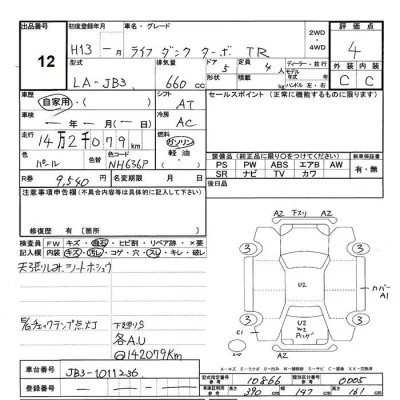 出品番号
12
初度登録年月
車名・グレード
H13 -月 ライフ ダンク ターボ TR
2WD
・
4WD
評価点
4
型式
LA-JB3
排気量
660 cc
ドア 5 定員 4人
ディーラー・並行
モデル年式
ハンドル 左・右
外装 内装
C C
車歴
自家用・
シフト
AT
車検 -年 -月(-日)
冷房
AC
セールスポイント(正常に機能するものに限る)
走行 14万2千079km
燃料
ガソリン
軽油
色
パール
色替
色コード
NH636P
装備品(純正品に限り○をつけてください)
新車保証書
PS PW ABS エアB AW
SR ナビ TV カワ
有・無
R券 9,540
名変期限 月 日
後日品
注意事項申告欄(不具合等は具体的に記入して下さい)
修復歴 有〔箇所
検査員記入欄
FW キズ・飛石・ヒビ割・リペア跡・×要
内装 キズ・汚れ・コゲ・穴・スレ・キレ・破レ
天張りしみ シートホシュウ
岩チェックランプ点灯
下廻りS
各A.U
142079Km
A2 下スリ A2
3 3
3 3
U2
U2 W2
C1
カバーA1
A2 A2
車台番号
JB3-1011236
登録番号
A-キズ
型式指定番号 参考
10866
類別区分番号 参考
0005
車両証明 参考
長さ 390 cm
幅 147 cm
高さ 161 cm